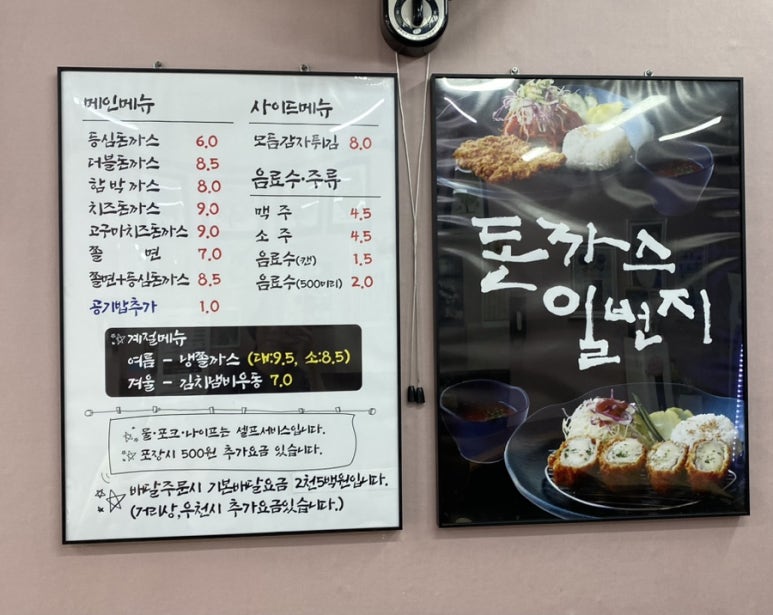 메인메뉴
등심돈까스 6.0
더블돈까스 8.5
함박까스 8.0
치즈돈까스 9.0
고구마치즈돈까스 9.0
쫄 면 7.0
쫄면+등심돈까스 8.5
공기밥추가 1.0
사이드메뉴
모듬감자튀김 8.0
음료수·주류
맥 주 4.5
소 주 4.5
음료수(캔) 1.5
음료수(500미리) 2.0
☆계절메뉴
여름 - 냉쫄까스 (대:9.5, 소:8.5)
겨울 - 김치냄비우동 7.0
☆ 물·포크·나이프는 셀프서비스입니다.
☆ 포장시 500원 추가요금 있습니다.
☆ 배달주문시 기본배달요금 2천5백원입니다.
(거리상,우천시 추가요금있습니다.)
돈까스
일번지